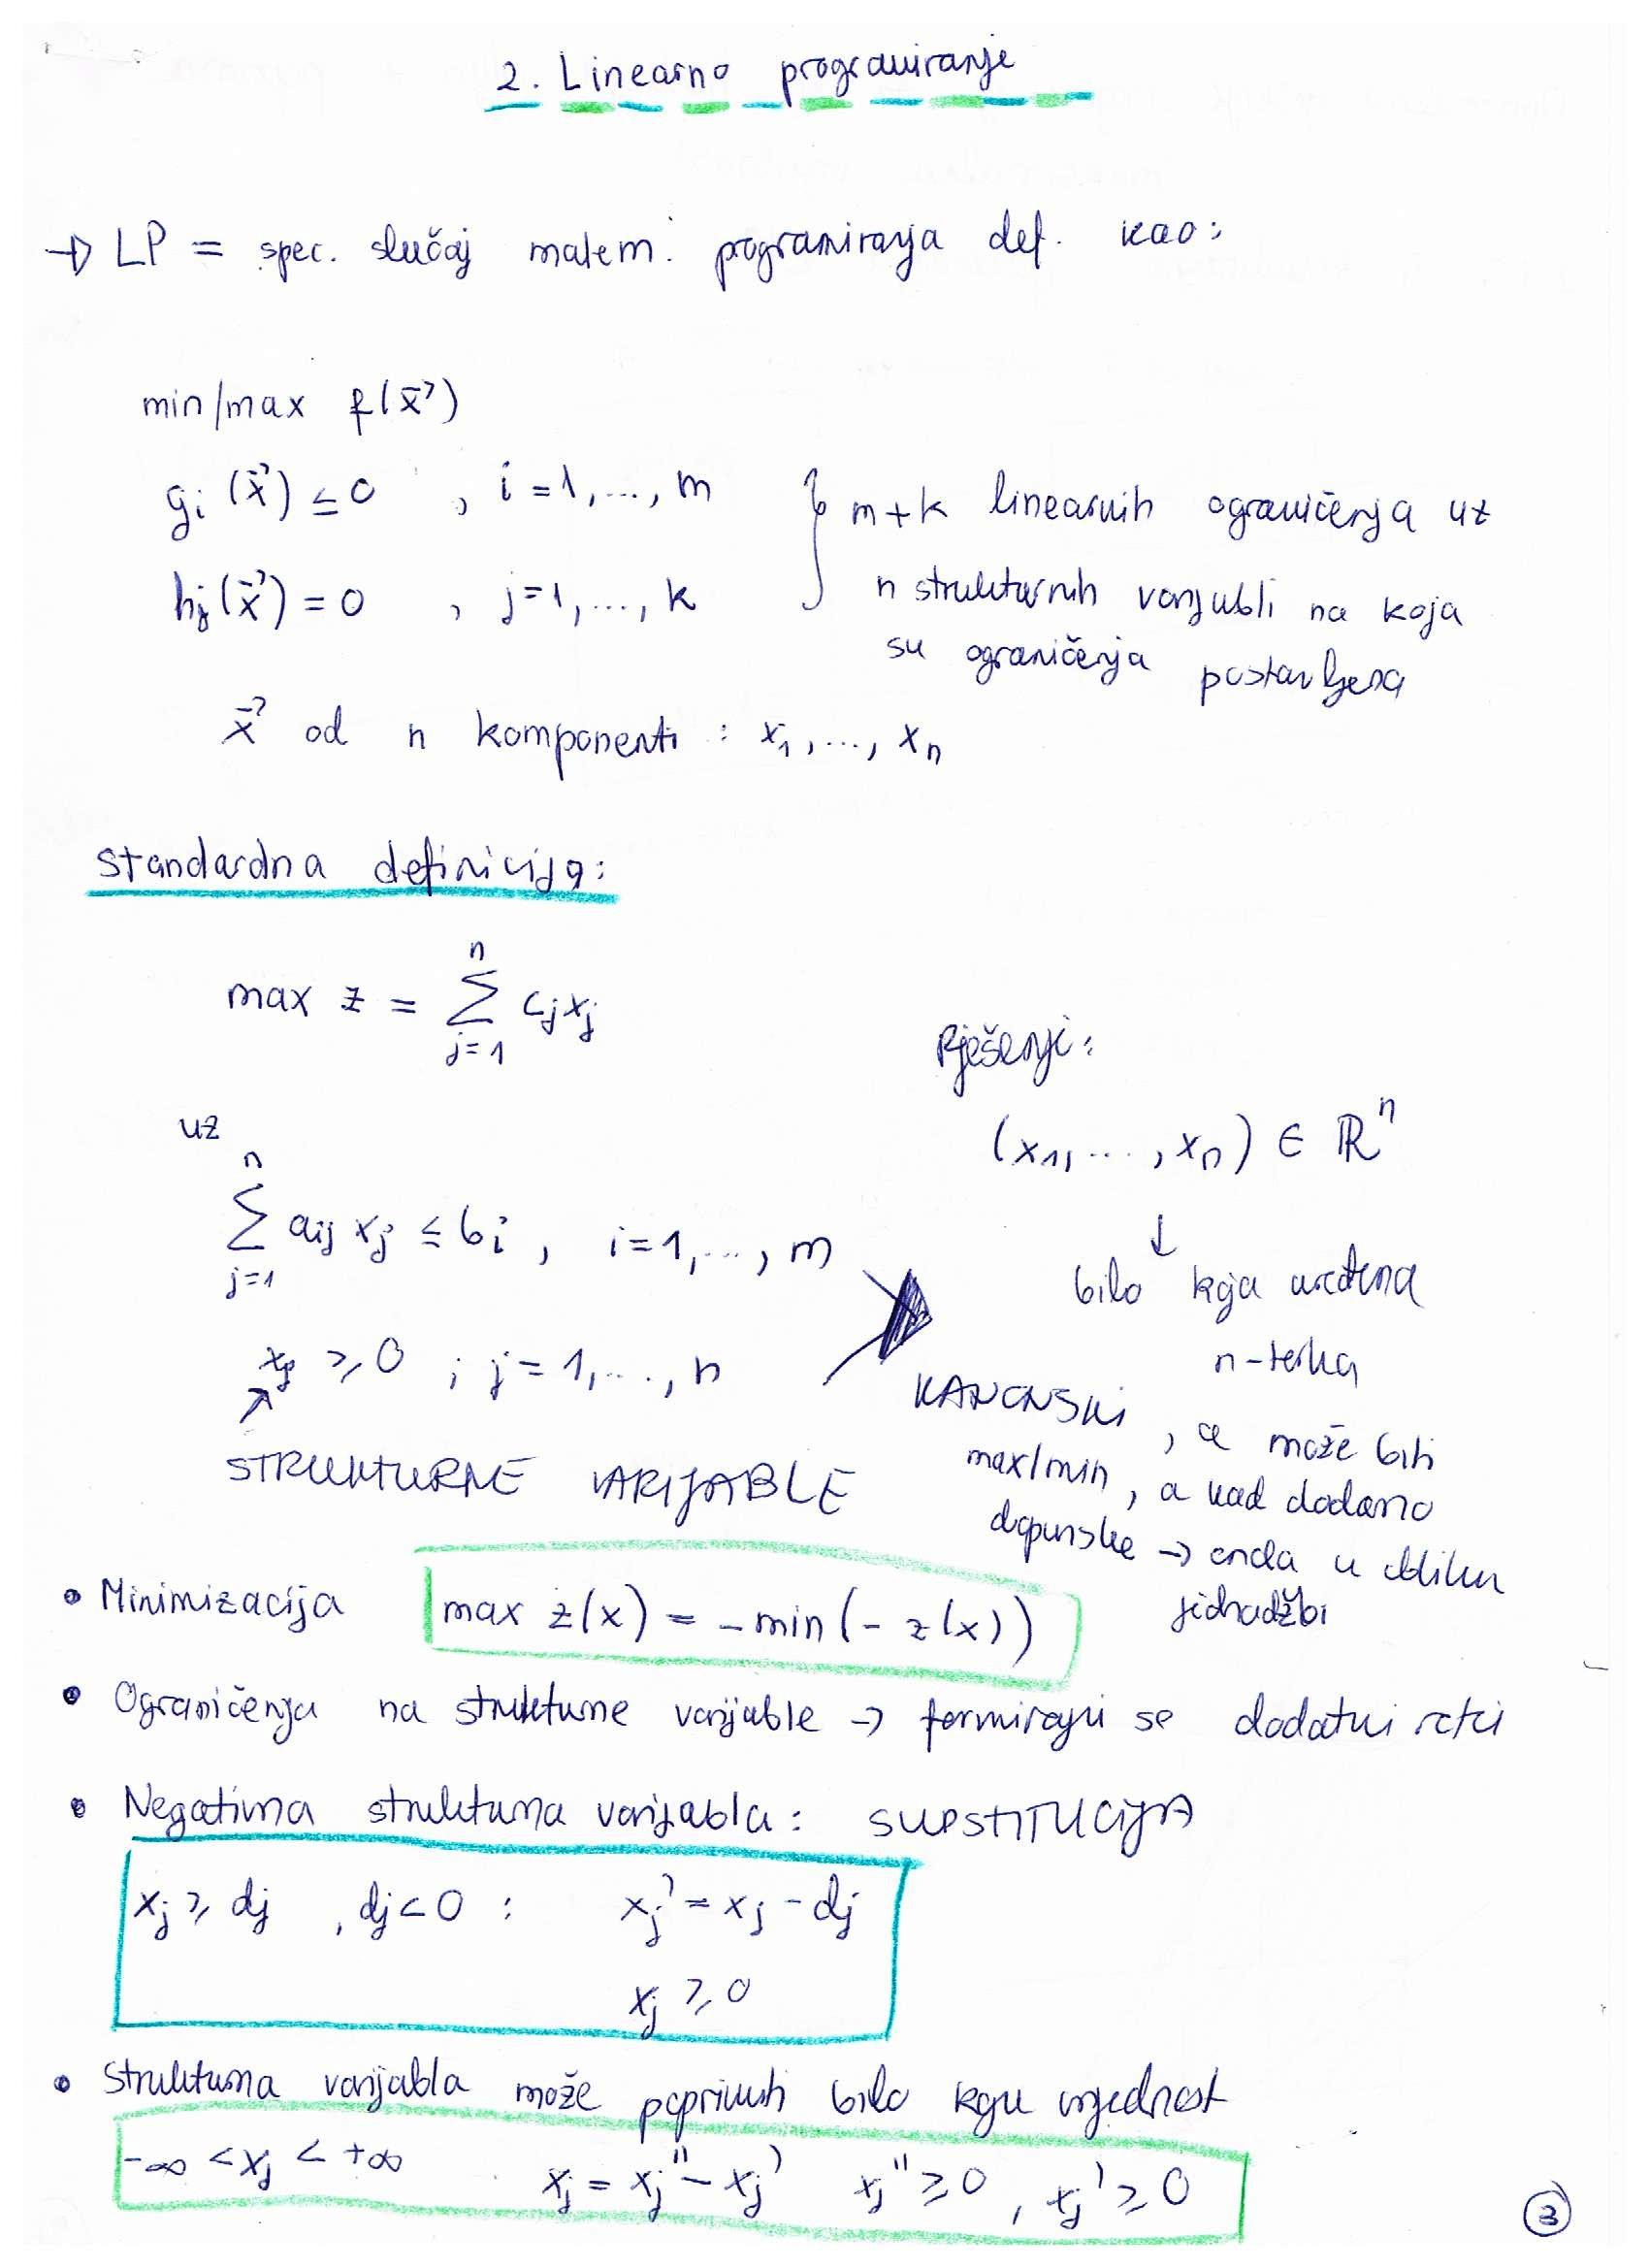 2. Linearno programiranje
→ LP = spec. slučaj matem. programiranja def. kao:
min/max f(x⃗)
gi (x⃗) ≤ 0 , i = 1, ..., m
hj (x⃗) = 0 , j = 1, ..., k
} m + k linearnih ograničenja uz
n strukturnih varijabli na koja
su ograničenja postavljena
x⃗ od n komponenti : x1, ..., xn
standardna definicija:
max z = ∑_{j=1}^{n} cj xj
uz
∑_{j=1}^{n} aij xj ≤ bi , i = 1, ..., m
xj ≥ 0 ; j = 1, ..., n
↗
STRUKTURNE VARIJABLE
Rješenje:
(x1, ..., xn) ∈ ℝ^n
↓
bilo koja uređena
n-torka
KANONSKI , a može biti
max/min , a kad dodamo
dopunske → onda u obliku
jednadžbi
• Minimizacija max z(x) = - min (- z(x))
• Ograničenja na strukturne varijable → formiraju se dodatni retci
• Negativna strukturna varijabla : SUPSTITUCIJA
xj ≥ dj , dj < 0 : xj' = xj - dj
xj ≥ 0
• Strukturna varijabla može poprimiti bilo koju vrijednost
-∞ < xj < +∞ xj = xj'' - xj' xj'' ≥ 0 , xj' ≥ 0
3